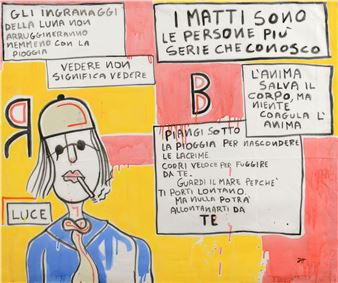 GLI INGRANAGGI
DELLA LUNA NON
ARRUGGINERANNO
NEMMENO CON LA
PIOGGIA
I MATTI SONO
LE PERSONE PIÙ
SERIE CHE CONOSCO
VEDERE NON
SIGNIFICA VEDERE
L'ANIMA
SALVA IL
CORPO, MA
NIENTE
COAGULA L'
ANIMA
R
B
PIANGI SOTTO
LA PIOGGIA PER NASCONDERE
LE LACRIME.
CORRI VELOCE PER FUGGIRE
DA TE.
GUARDI IL MARE PERCHÈ
TI PORTI LONTANO.
MA NULLA POTRÀ
ALLONTANARTI DA
TE
LUCE